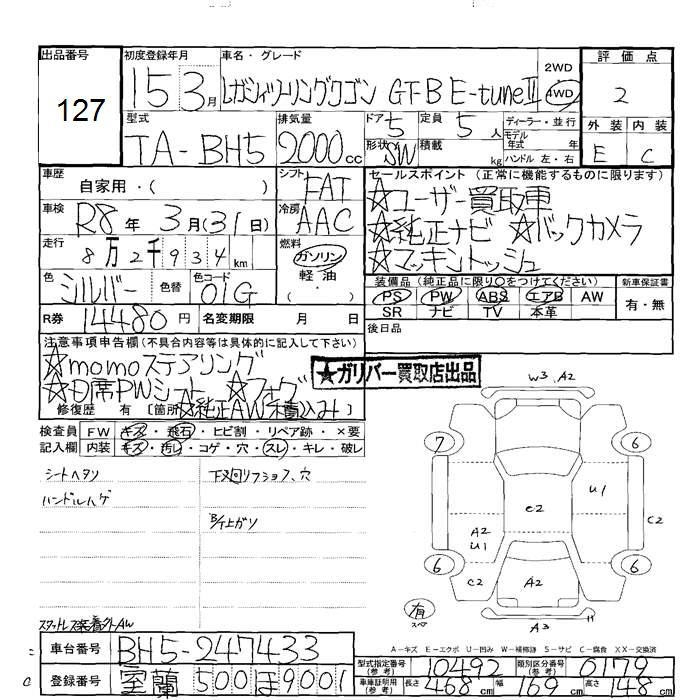 出品番号 初度登録年月 車名・グレード 2WD 評価点
127 15 3月 レガシィツーリングワゴン GT-B E-tuneⅡ 4WD 2
型式 排気量 ドア 定員 ディーラー・並行 外装 内装
TA-BH5 2000cc 5 5人 モデル年式 年 E C
形状 SW 積載 kg ハンドル 左・右
車歴 自家用・( ) シフト FAT セールスポイント (正常に機能するものに限ります)
車検 R8年 3月(31日) 冷房 AAC ☆ユーザー買取車
走行 8万2千934km 燃料 ガソリン 軽油 ( ・ ) ☆純正ナビ ☆バックカメラ
☆マッキントッシュ
色 シルバー 色替 色コード 01G 装備品 (純正品に限り○をつけてください) 新車保証書
PS PW ABS エアB AW 有・無
SR ナビ TV 本革
R券 14480円 名変期限 月 日 後日品
注意事項申告欄(不具合内容等は具体的に記入して下さい)
☆momoステアリング
☆D席PWシート ☆フォグ
修復歴 有 [箇所 ☆純正AW(積込み)
★ガリバー買取店出品
検査員 FW キズ・飛石・ヒビ割・リペア跡・×要
記入欄 内装 キズ・汚レ・コゲ・穴・スレ・キレ・破レ
シートヘタリ 下廻リフショク、穴
ハンドルハゲ
B/T上ガリ
スタットレス装着外AW
W3, A2
7 6
U1
C2
e2
A2
U1
6 C2 A2 6
有
スペア
A3
A-キズ E-エクボ U-凹み W-補修跡 S-サビ C-腐食 XX-交換済
車台番号 BH5-247433
型式指定番号(参考) 10492 類別区分番号(参考) 0179
登録番号 室蘭 500 ほ 9001
車庫証明用(参考) 長さ 468cm 幅 169cm 高さ 148cm